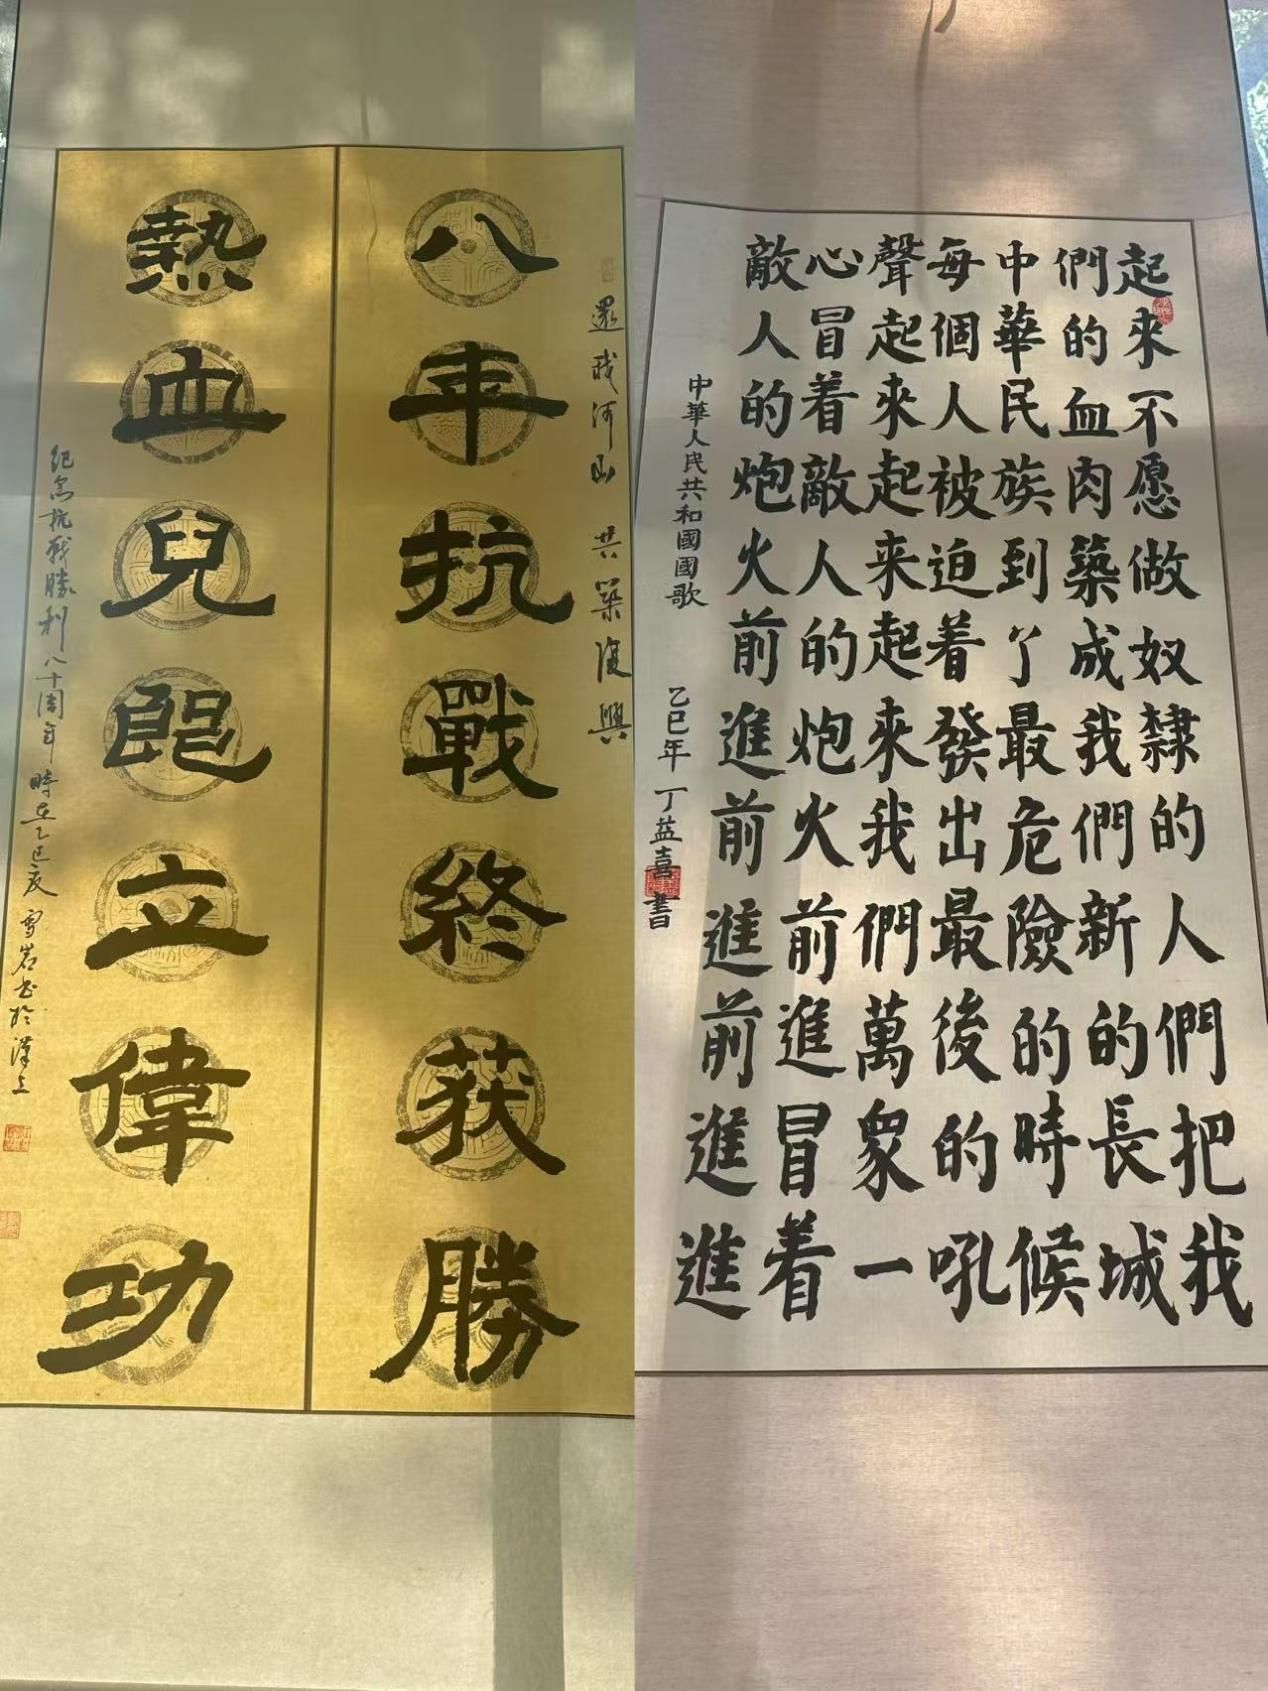 還我河山 共築復興
八年抗戰終获勝
熱血兒郎立偉功
紀念抗戰勝利八十周年時在乙巳夏 雪岩书於漢上
起來不愿做奴隸的人們把我
們的血肉築成我們新的長城
中華民族到了最危險的時候
每個人被迫着發出最後的吼
聲起來起来起來我們萬眾一
心冒着敵人的炮火前進冒着
敵人的炮火前進前進前進進
中華人民共和國國歌
乙巳年 丁益喜書